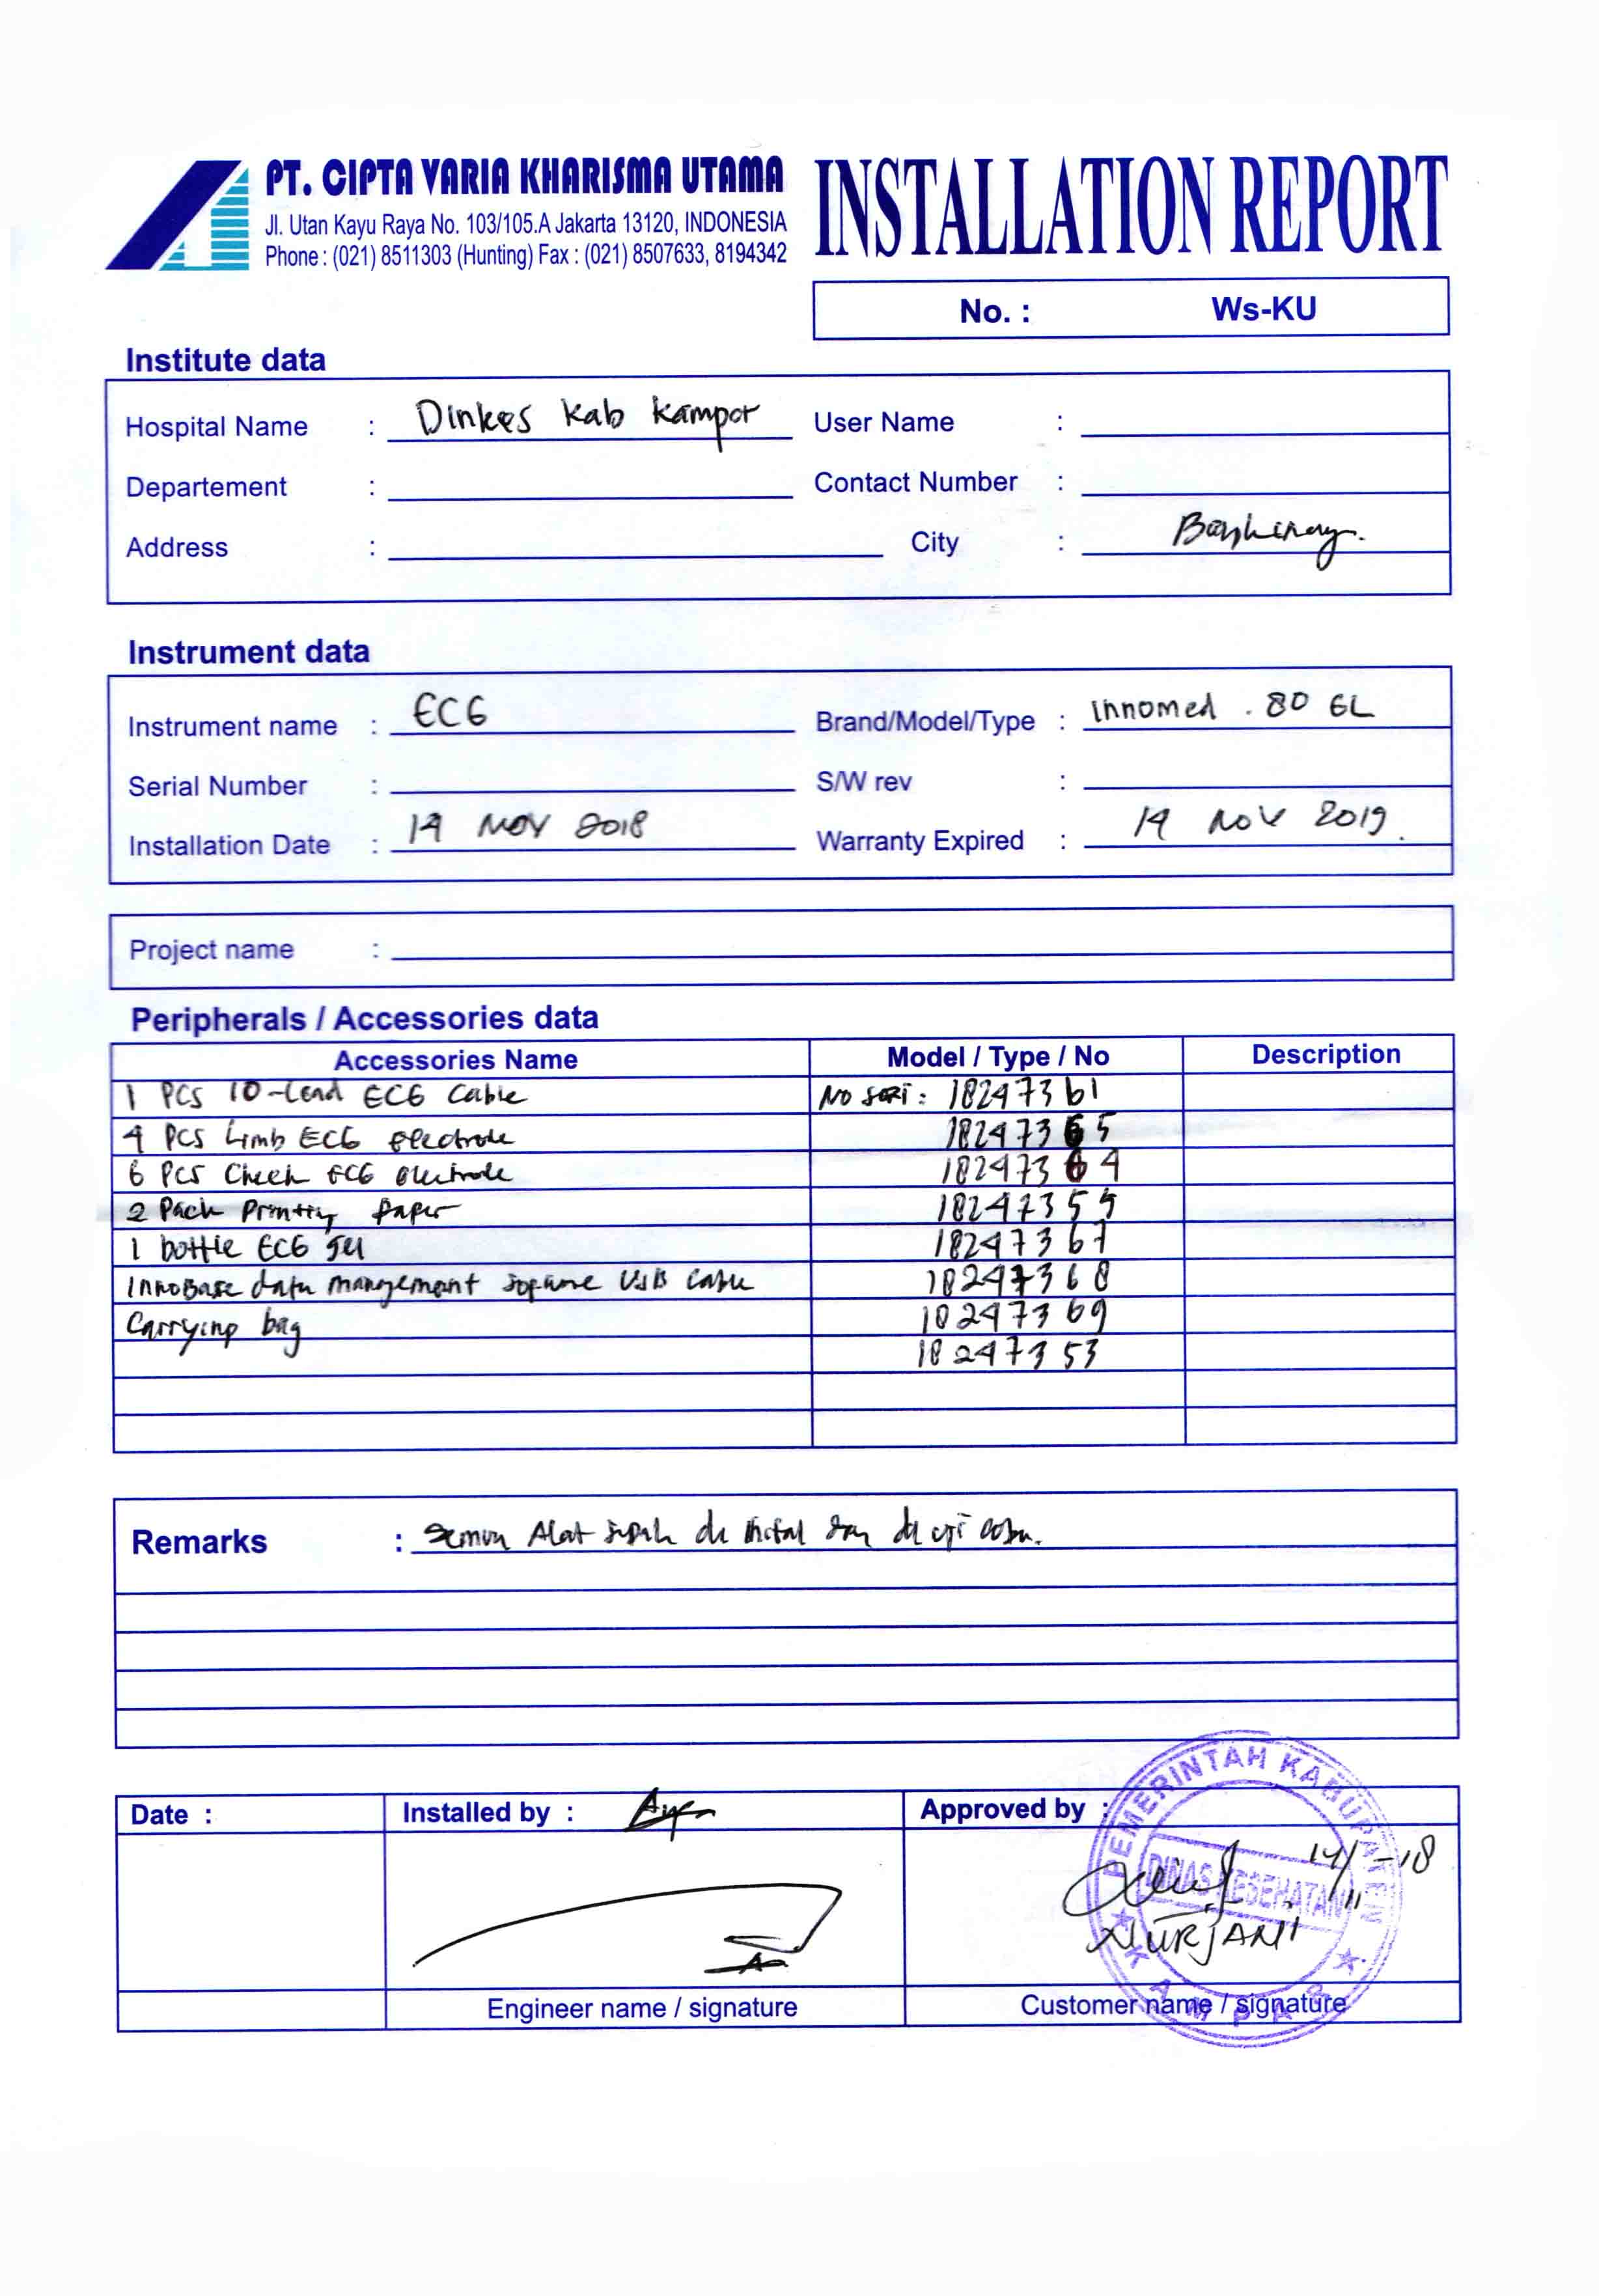 PT. CIPTA VARIA KHARISMA UTAMA
Jl. Utan Kayu Raya No. 103/105.A Jakarta 13120, INDONESIA
Phone : (021) 8511303 (Hunting) Fax : (021) 8507633, 8194342
INSTALLATION REPORT
No. : Ws-KU
Institute data
Hospital Name : Dinkes Kab Kampar User Name :
Departement : Contact Number :
Address : City :
Instrument data
Instrument name : ECG Brand/Model/Type : Innomed . 80 GL
Serial Number : S/W rev :
Installation Date : 14 NOV 2018 Warranty Expired : 14 NOV 2019.
Project name :
Peripherals / Accessories data
Accessories Name Model / Type / No Description
1 PCS 10-Lead ECG Cable No SERI : 18247361
4 PCS Limb ECG electrode 18247365
6 PCS ECG electrode 18247364
2 Pack Printing Paper 182473
1 bottle ECG gel 18247367
InnoBase data management USB Cable 18247368
Carrying bag 18247369
18247353
Remarks : Semua Alat di dan di uji coba.
Date : Installed by : Approved by :
14/11-18
NURJANI
Engineer name / signature Customer name / signature
PEMERINTAH KABUPATEN
DINAS KESEHATAN
★ KAMPAR ★